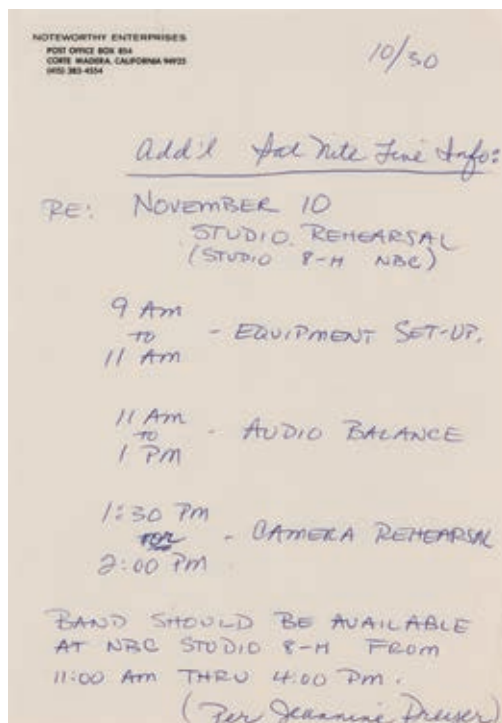 NOTEWORTHY ENTERPRISES
POST OFFICE BOX 854
CORTE MADERA, CALIFORNIA 94925
(415) 383-4554
10/30
Add'l Sat Nite Live Info:
RE: NOVEMBER 10
STUDIO REHEARSAL
(STUDIO 8-H NBC)
9 AM
TO - EQUIPMENT SET-UP.
11 AM
11 AM
TO - AUDIO BALANCE
1 PM
1:30 PM
- CAMERA REHEARSAL
2:00 PM
BAND SHOULD BE AVAILABLE
AT NBC STUDIO 8-H FROM
11:00 AM THRU 4:00 PM.
(Per Jeannine Dreiser)